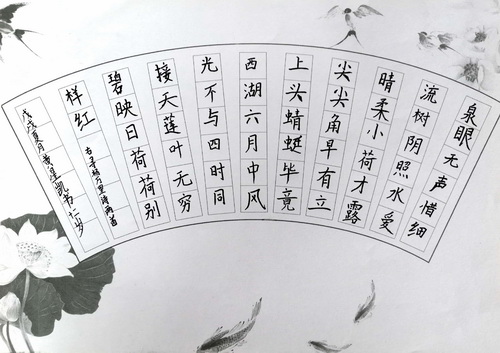 泉眼无声惜细
流树阴照水爱
晴柔小荷才露
尖尖角早有立
上头蜻蜓毕竟
西湖六月中风
光不与四时同
接天莲叶无穷
碧映日荷荷别
样红
右录杨万里诗两首
戊戌夏月黄星凯书